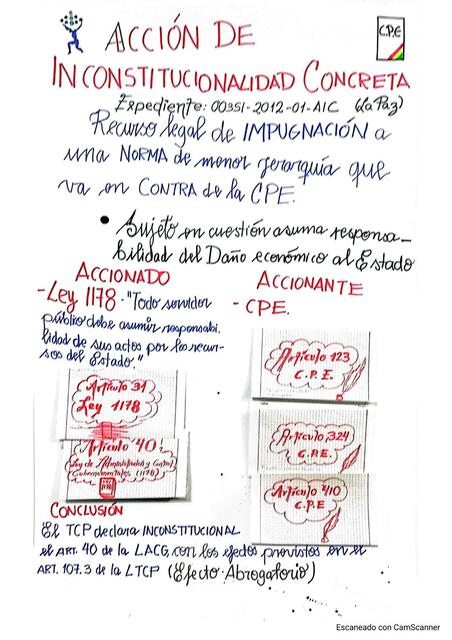 C.P.E
ACCIÓN DE
INCONSTITUCIONALIDAD CONCRETA
Expediente: 00351-2012-01-AIC (La Paz)
Recurso legal de IMPUGNACIÓN a
una NORMA de menor jerarquía que
va en CONTRA de la CPE.
• Sujeto en cuestión asuma responsa-
bilidad del Daño económico al Estado
ACCIONADO
- Ley 1178. "Todo servidor
público debe asumir responsabi
lidad de sus actos por los recur-
sos del Estado."
Artículo 31
Ley 1178
Artículo 40
Ley de Administración y Control
Gubernamentales (1178)
ACCIONANTE
- CPE.
Artículo 123
C.P.E.
Artículo 324
C.P.E.
Artículo 410
C.P.E
CONCLUSIÓN
El TCP declara INCONSTITUCIONAL
el ART. 40 de la LACG, con los efectos previstos en el
ART. 107.3 de la LTCP (Efecto Abrogatorio)
Escaneado con CamScanner